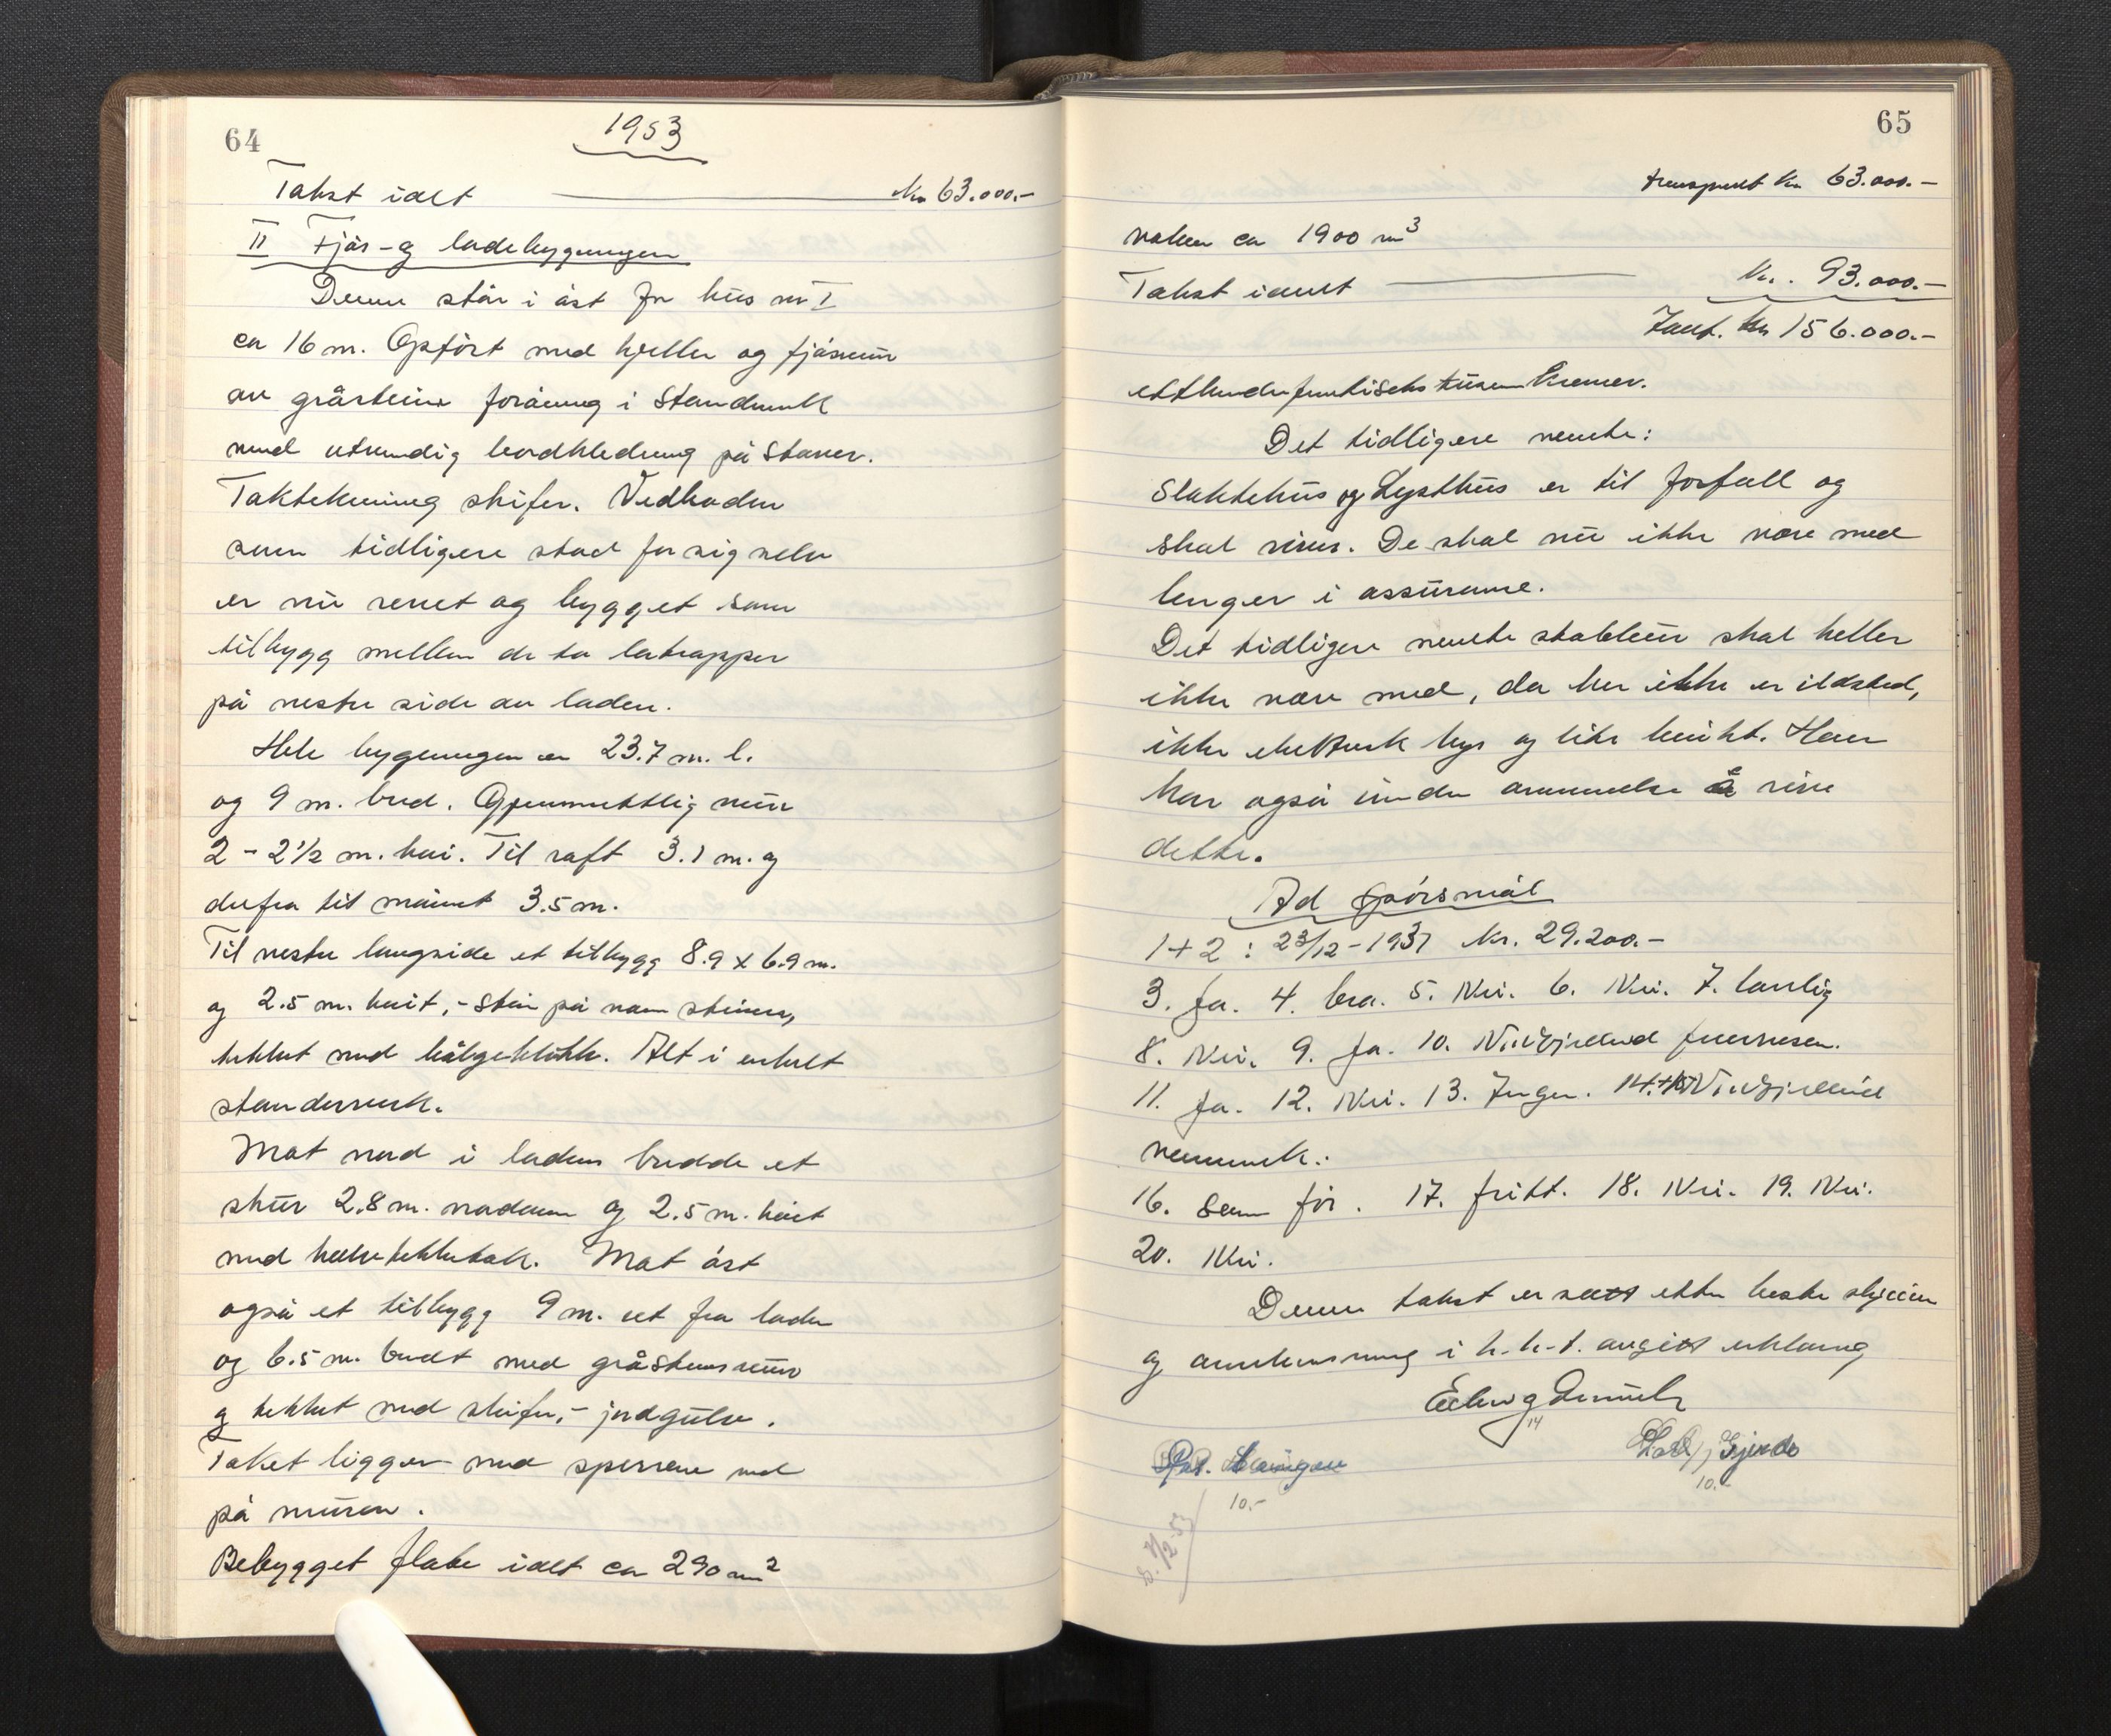 64
1953
Takst ialt Kr 63.000.-
II Fjøs- og ladebygningen
Denne står i øst for hus nr I
ca 16 m. Opført med kjeller og fjøsmur
av gråstein forøvrig i standverk
med utvendig bordkledning på stover.
Taktekning skifer. Vedboden
som tidligere stod for sig selv
er nu revet og bygget som
tilbygg mellem de to låtrapper
på vestre side av laden.
Hele bygningen er 23.7 m. l.
og 9 m. bred. Gjennomsnittlig mur
2 - 2 1/2 m. høi. Til raft 3.1 m. og
derfra til mønet 3.5 m.
Til vestre langside et tilbygg 8.9 x 6.9 m.
og 2.5 m. høit, - står på noen steiner,
tekket med bølgeblikk. Alt i enkelt
standerverk.
Mot nord i ladens bredde et
skur 2.8 m. nordover og 2.5 m. høit
med tak. Mot øst
også et tilbygg 9 m. ut fra laden
og 6.5 m. bredt med gråstensmur
og tekket med skifer, - jordgulv.
Taket ligger med sperrene ned
på muren.
Bebygget flate ialt ca 290 m2
65
transport kr 63.000.-
volum ca 1900 m3
Takst ialt Kr. 93.000.-
Tils. kr 156.000.-
etthundrefemtiseks tusen kroner.
Det tidligere nevnte:
Slaktehus og Lysthus er til forfall og
skal rives. De skal nu ikke være med
lenger i assuranse.
Det tidligere nevnte stabbur skal heller
ikke være med, da her ikke er ildsted,
ikke elektrisk lys og lite brukt. Han
har også under å rive
dette.
Ad spørsmål
1+2 : 23/12-1937 Kr. 29.200.-
3. Ja. 4. bra. 5. Nei. 6. Nei. 7. lovlig
8. Nei. 9. Ja. 10. Vedgjellend
11. Ja. 12. Nei. 13. Ingen. 14.+15 Vedgjellend
16. Som før. 17. fritt. 18. Nei. 19. Nei.
20. Nei.
Denne takst er satt etter beste skjønn
og i h.h.t. avgitt erklæring
14
10.-
10.-